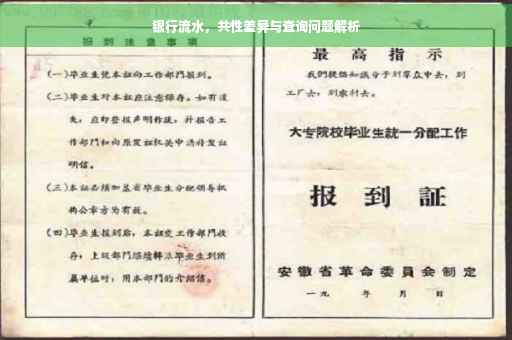 银行流水，共性差异与查询问题解析
报到注意事项
(一)毕业生凭本证向工作部门报到。
(二)毕业生对本证应注意保存。如有遗
失，应即登报声明作废，并报告工
作部门和向原发证机关申请补发证
明信。
(三)本证必须加盖省毕业生分配领导机
构公章方为有效。
(四)毕业生报到后，本证交工作部门收
存；上级部门继续转派毕业生到所
属单位时，用本部门的介绍信。
最高指示
我们提倡知识分子到群众中去，到
工厂去，到农村去。
大专院校毕业生统一分配工作
报到证
安徽省革命委员会制定
一九 年 月 日